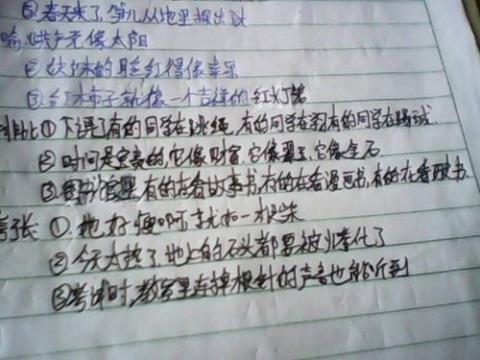 ③春天来了,笋儿从地里探出头
喻 ①灯光像太阳
②妹妹的脸红得像苹果
③红柿子就像一个吉祥的红灯笼
排比①下课了有的同学在跳绳,有的同学在 有的同学在踢球.
②时间是宝贵的,它像财富,它像 ,它像金石
③图书馆里,有的在看故事书,有的在看漫画书,有的在看 书.
夸张 ①.她好瘦啊 就如一根柴
②今天太热了地上的石头都要被 化了
③考试时,教室里连掉根针的声音也能听到